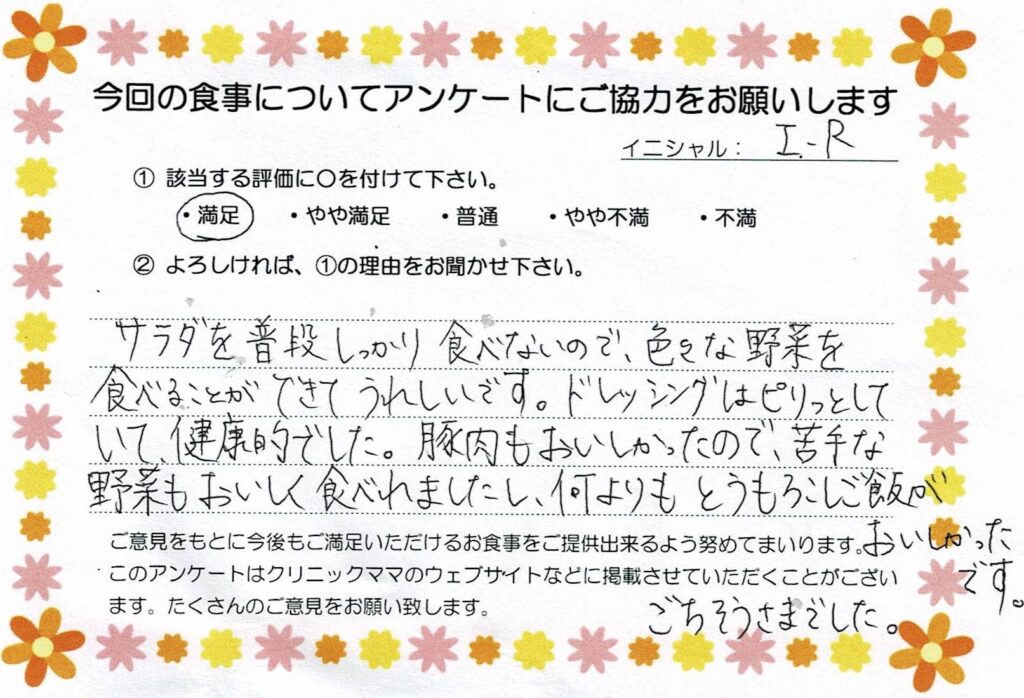 今回の食事についてアンケートにご協力をお願いします
イニシャル： I.-R
① 該当する評価に〇を付けて下さい。
・満足 ・やや満足 ・普通 ・やや不満 ・不満
② よろしければ、①の理由をお聞かせ下さい。
サラダを普段しっかり食べないので、色々な野菜を
食べることができてうれしいです。ドレッシングはピリっとして
いて、健康的でした。豚肉もおいしかったので、苦手な
野菜もおいしく食べれましたし、何よりもとうもろこしご飯が
おいしかった
です。
ごちそうさまでした。
ご意見をもとに今後もご満足いただけるお食事をご提供出来るよう努めてまいります。
このアンケートはクリニックママのウェブサイトなどに掲載させていただくことがござい
ます。たくさんのご意見をお願い致します。